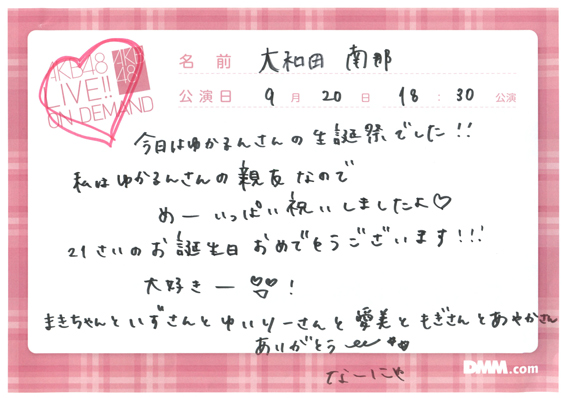 AKB48
LIVE!!
ON DEMAND
AKB
48
名 前 大和田 南那
公演日 9 月 20 日 18 : 30 公演
今日はゆかるんさんの生誕祭でした!!
私はゆかるんさんの親友なので
めーいっぱい祝いしましたよ♡
21さいのお誕生日おめでとうございます!!!
大好きー♡♡♡!
まきちゃんといずさんとゆいりーさんと愛美ともぎさんとあやかさん
ありがとう
なーにゃ
DMM.com